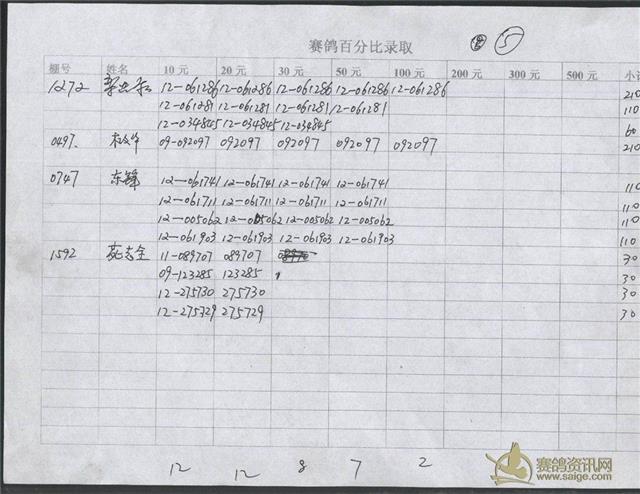 赛鸽百分比录取 ⑧ ⑤
棚号 姓名 10元 20元 30元 50元 100元 200元 300元 500元 小
1272 12-061286 12-061286 12-061286 12-061286 12-061286 210
12-061281 12-061281 12-061281 12-061281 110
12-034845 12-034845 12-034845 60
0497 09-092097 092097 092097 092097 092097 210
0747 东锋 12-061741 12-061741 12-061741 12-061741 110
12-061711 12-061711 12-061711 12-061711 110
12-005062 12-005062 12-005062 12-005062 110
12-061903 12-061903 12-061903 12-061903 110
1592 11-089707 089707 30
09-123285 123285 30
12-275730 275730 30
12-275729 275729 30
12 12 8 7 2
赛鸽资讯网
www.saige.com